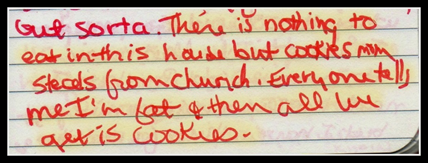 but sorta. There is nothing to
eat in this house but cookies mom
steals from church. Everyone tells
me I'm fat & then all we
get is cookies.